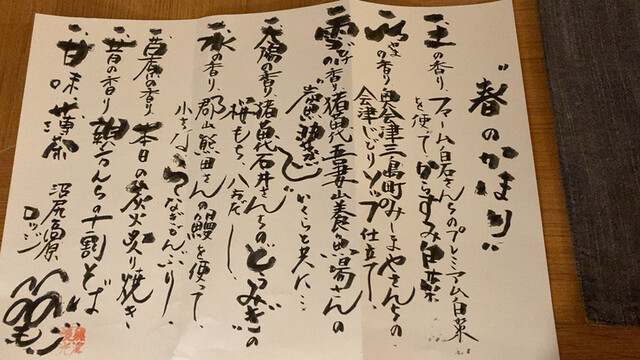 "春のかまり"
土の香り、ファーム白石さんちのプレミアム白菜
を使って からすみ白菜
山の香り、奥会津三島町のみしまやさんちの、
やま
会津じどり ソップ仕立て、
雪どけの香り、猪苗代吾妻山養魚場さんの
いくらと共に…
太陽の香り、猪苗代石井さんちのどうみぎの
桜もち、八方だし、
水の香り、郡山熊田さんの鰻を使って、
小さなうなぎどんぶり、
本日の炭火炙り焼き
昔の香り 親方んちの十割そば
甘味 薄茶
沼尻高原
ロッジ